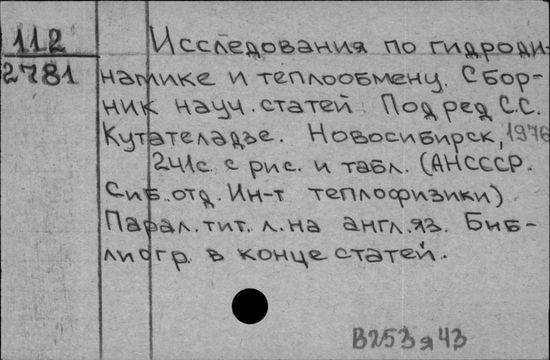 112
2781
Исследования по гидроди-
намике и теплообмену. Сбор-
ник науч. статей Под ред С.С.
Кутателадзе. Новосибирск, 1976
241с. с рис. и табл. (АНСССР.
Сиб. отд. Ин-т теплофизики)
Парал. тит. л. на англ. яз. Биб-
лиогр. в конце статей.
В253я43